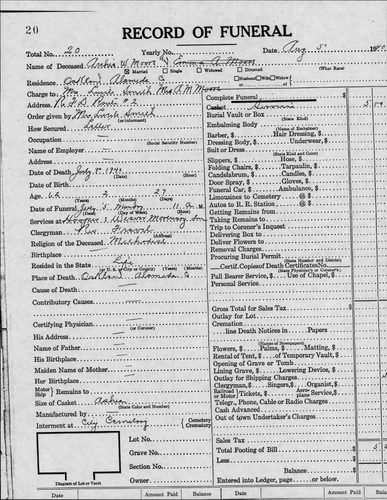 20
RECORD OF FUNERAL
Total No. 20 Yearly No. Date Aug 5 19
Name of Deceased W Moore & Emma A. Moore
Married Single Widowed Divorced (What Race)
Residence Oakland Alameda C Husband Wife Widow
Charge to Mrs. Smith Mrs A.M Moore
Address R. F. D. Route # 2
Order given by Mrs Smith
(or informant)
How Secured Letter
Occupation
(Social Security Number)
Name of Employer
Address
Date of Death July 9 1940
(Date) (Hour)
Date of Birth
Age 62 2 27
Date of Funeral 11 a M
(Date) (Day of Week) (Hour)
Services at
Clergyman Rev
Religion of the Deceased Methodist
Birthplace
Resided in the State Life
(or U. S., City or County) (Years) (Months)
Place of Death Oakland Alameda C
Cause of Death
Contributory Causes
Certifying Physician
(or Coroner)
His Address
Name of Father
His Birthplace
Maiden Name of Mother
Her Birthplace
Motor Ship Remains to
Size of Casket
(State Color and Number)
Manufactured by
Interment at City Cemetery Cemetery Crematory
Lot No.
Grave No.
Section No.
Owner
Diagram of Lot or Vault
Complete Funeral
Casket
Burial Vault or Box
(State Kind)
Embalming Body
(Name of Embalmer)
Barber, $ Hair Dressing, $
Dressing Body, $ Underwear, $
Suit or Dress
Slippers, $ Hose, $
Folding Chairs, $ Tarpaulin, $
Candelabrum, $ Candles, $
Door Spray, $ Gloves, $
Funeral Car, $ Ambulance, $
Limousines to Cemetery @ $
Autos to R. R. Station @ $
Getting Remains from
Taking Remains to
Trip to Coroner's Inquest
Delivering Box to
Deliver Flowers to
Removal Charges
Procuring Burial Permit
(State Number and District)
Certif. Copies of Death Certificates No.
(State Physician's or Coroner's)
Pall Bearer Service $ Use of Chapel, $
Personal Service
Gross Total for Sales Tax
Outlay for Lot
Cremation
line Death Notices in Papers
(Names of Newspapers)
Flowers, $ Palms, $ Matting, $
Rental of Tent, $ of Temporary Vault, $
Opening of Grave or Tomb
Lining Grave, $ Lowering Device, $
Outlay for Shipping Charges
Clergyman, $ Singers, $ Organist, $
Railroad or Motor Tickets, $ Aeroplane Service, $
Telegr., Phone, Cable or Radio Charges
Cash Advanced
Out of town Undertaker's Charges
Sales Tax
Total Footing of Bill
Less
Balance
Entered into Ledger, page or below.
Date Amount Paid Balance Date Amount Paid Balance Date Amount Paid Balance